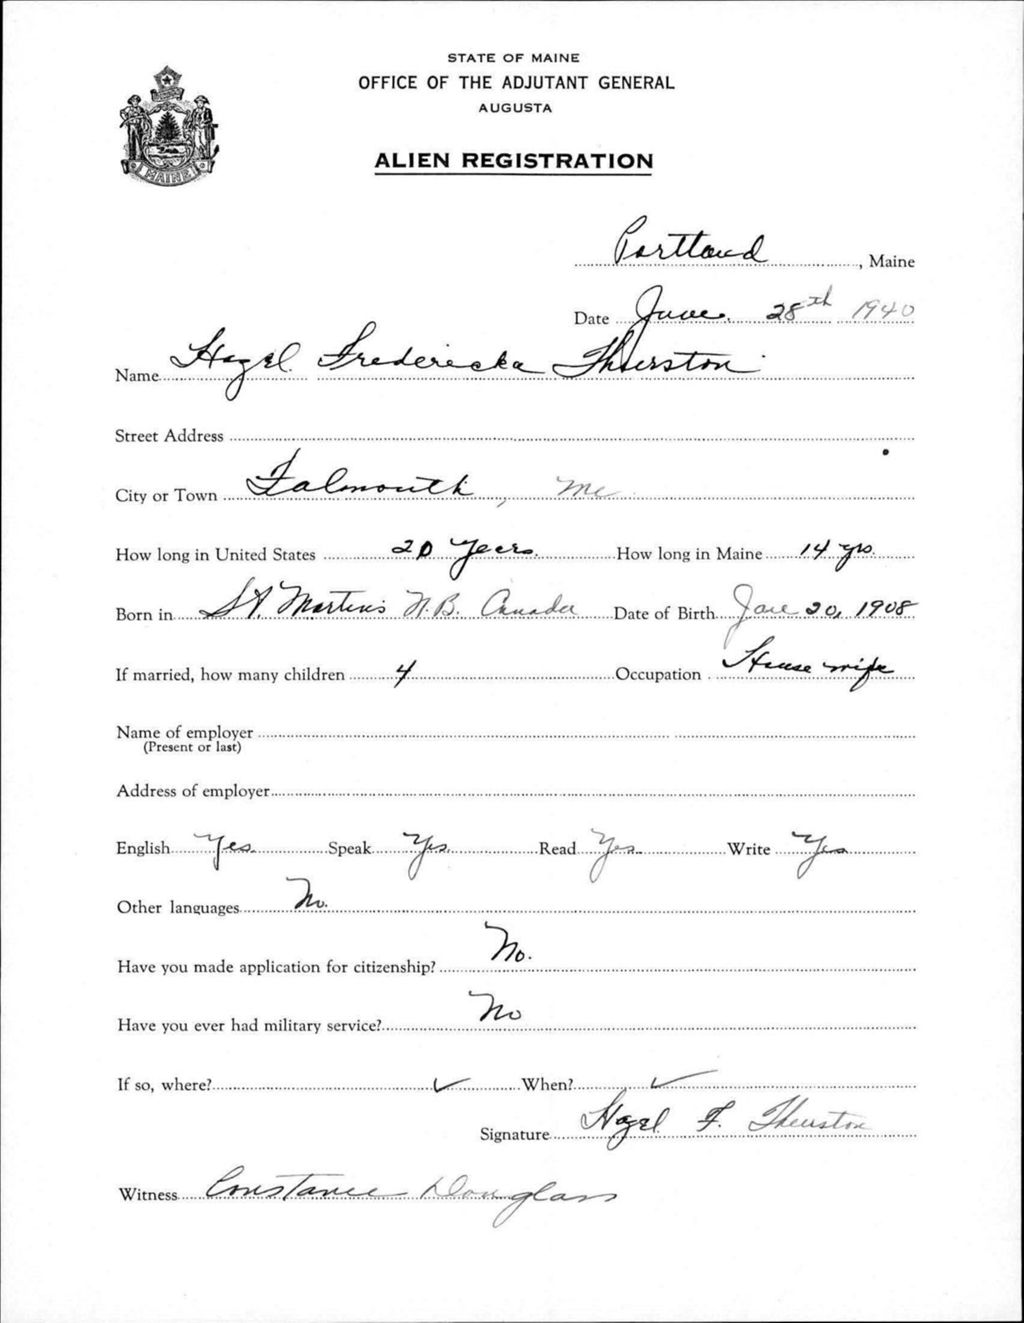 STATE OF MAINE
OFFICE OF THE ADJUTANT GENERAL
AUGUSTA
ALIEN REGISTRATION
MAINE
Portland, Maine
Date June 28th 1940
Name Hazel Fredericka Thurston
Street Address
City or Town Falmouth, Me
How long in United States 20 Years. How long in Maine 14 yrs.
Born in St Martins N.B. Canada Date of Birth Jan 20, 1908
If married, how many children 4 Occupation House wife
Name of employer
(Present or last)
Address of employer
English Yes Speak Yes. Read Yes. Write Yes
Other languages No.
Have you made application for citizenship? No.
Have you ever had military service? No
If so, where? ✓ When? ✓
Signature Hazel F. Thurston
Witness Constance Douglass